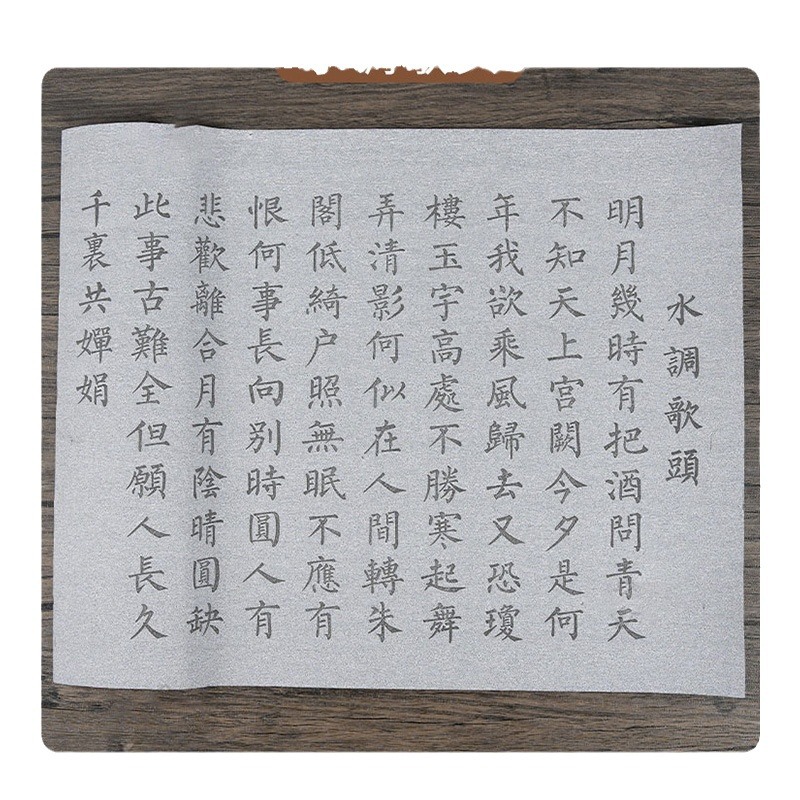 水調歌頭
明月幾時有把酒問青天
不知天上宮闕今夕是何
年我欲乘風歸去又恐瓊
樓玉宇高處不勝寒起舞
弄清影何似在人間轉朱
閣低綺户照無眠不應有
恨何事長向别時圓人有
悲歡離合月有陰晴圓缺
此事古難全但願人長久
千裏共嬋娟